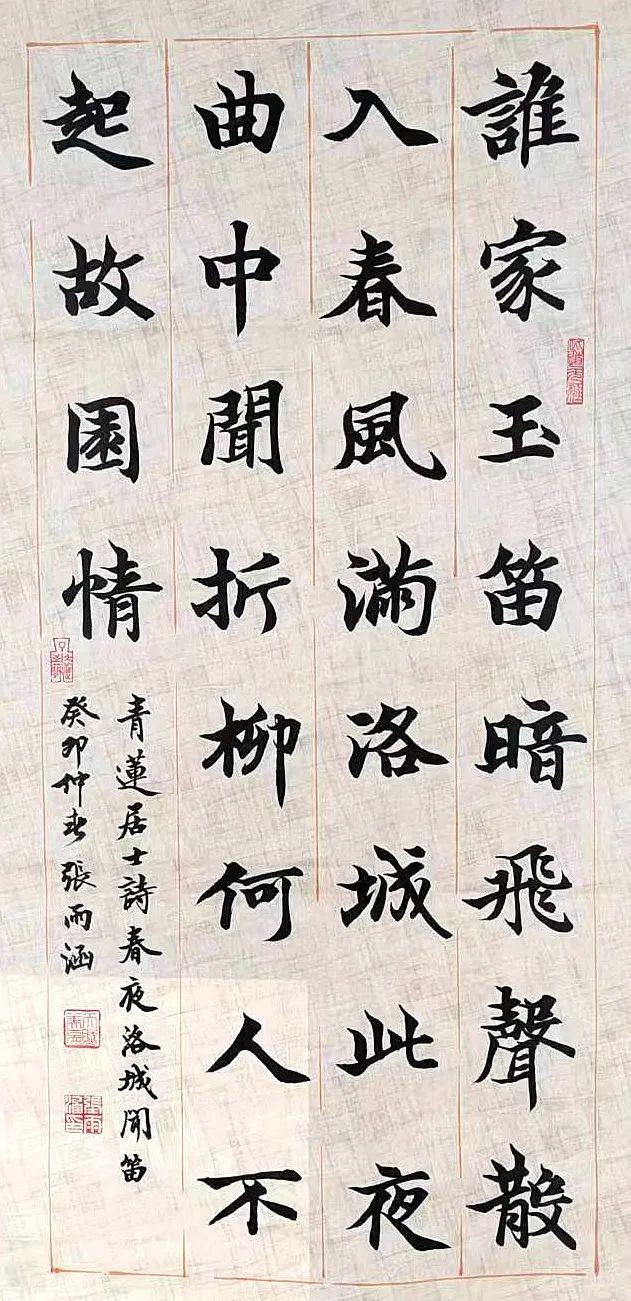 誰家玉笛暗飛聲散
入春風滿洛城此夜
曲中聞折柳何人不
起故園情
青蓮居士詩春夜洛城聞笛
癸卯仲春張雨涵